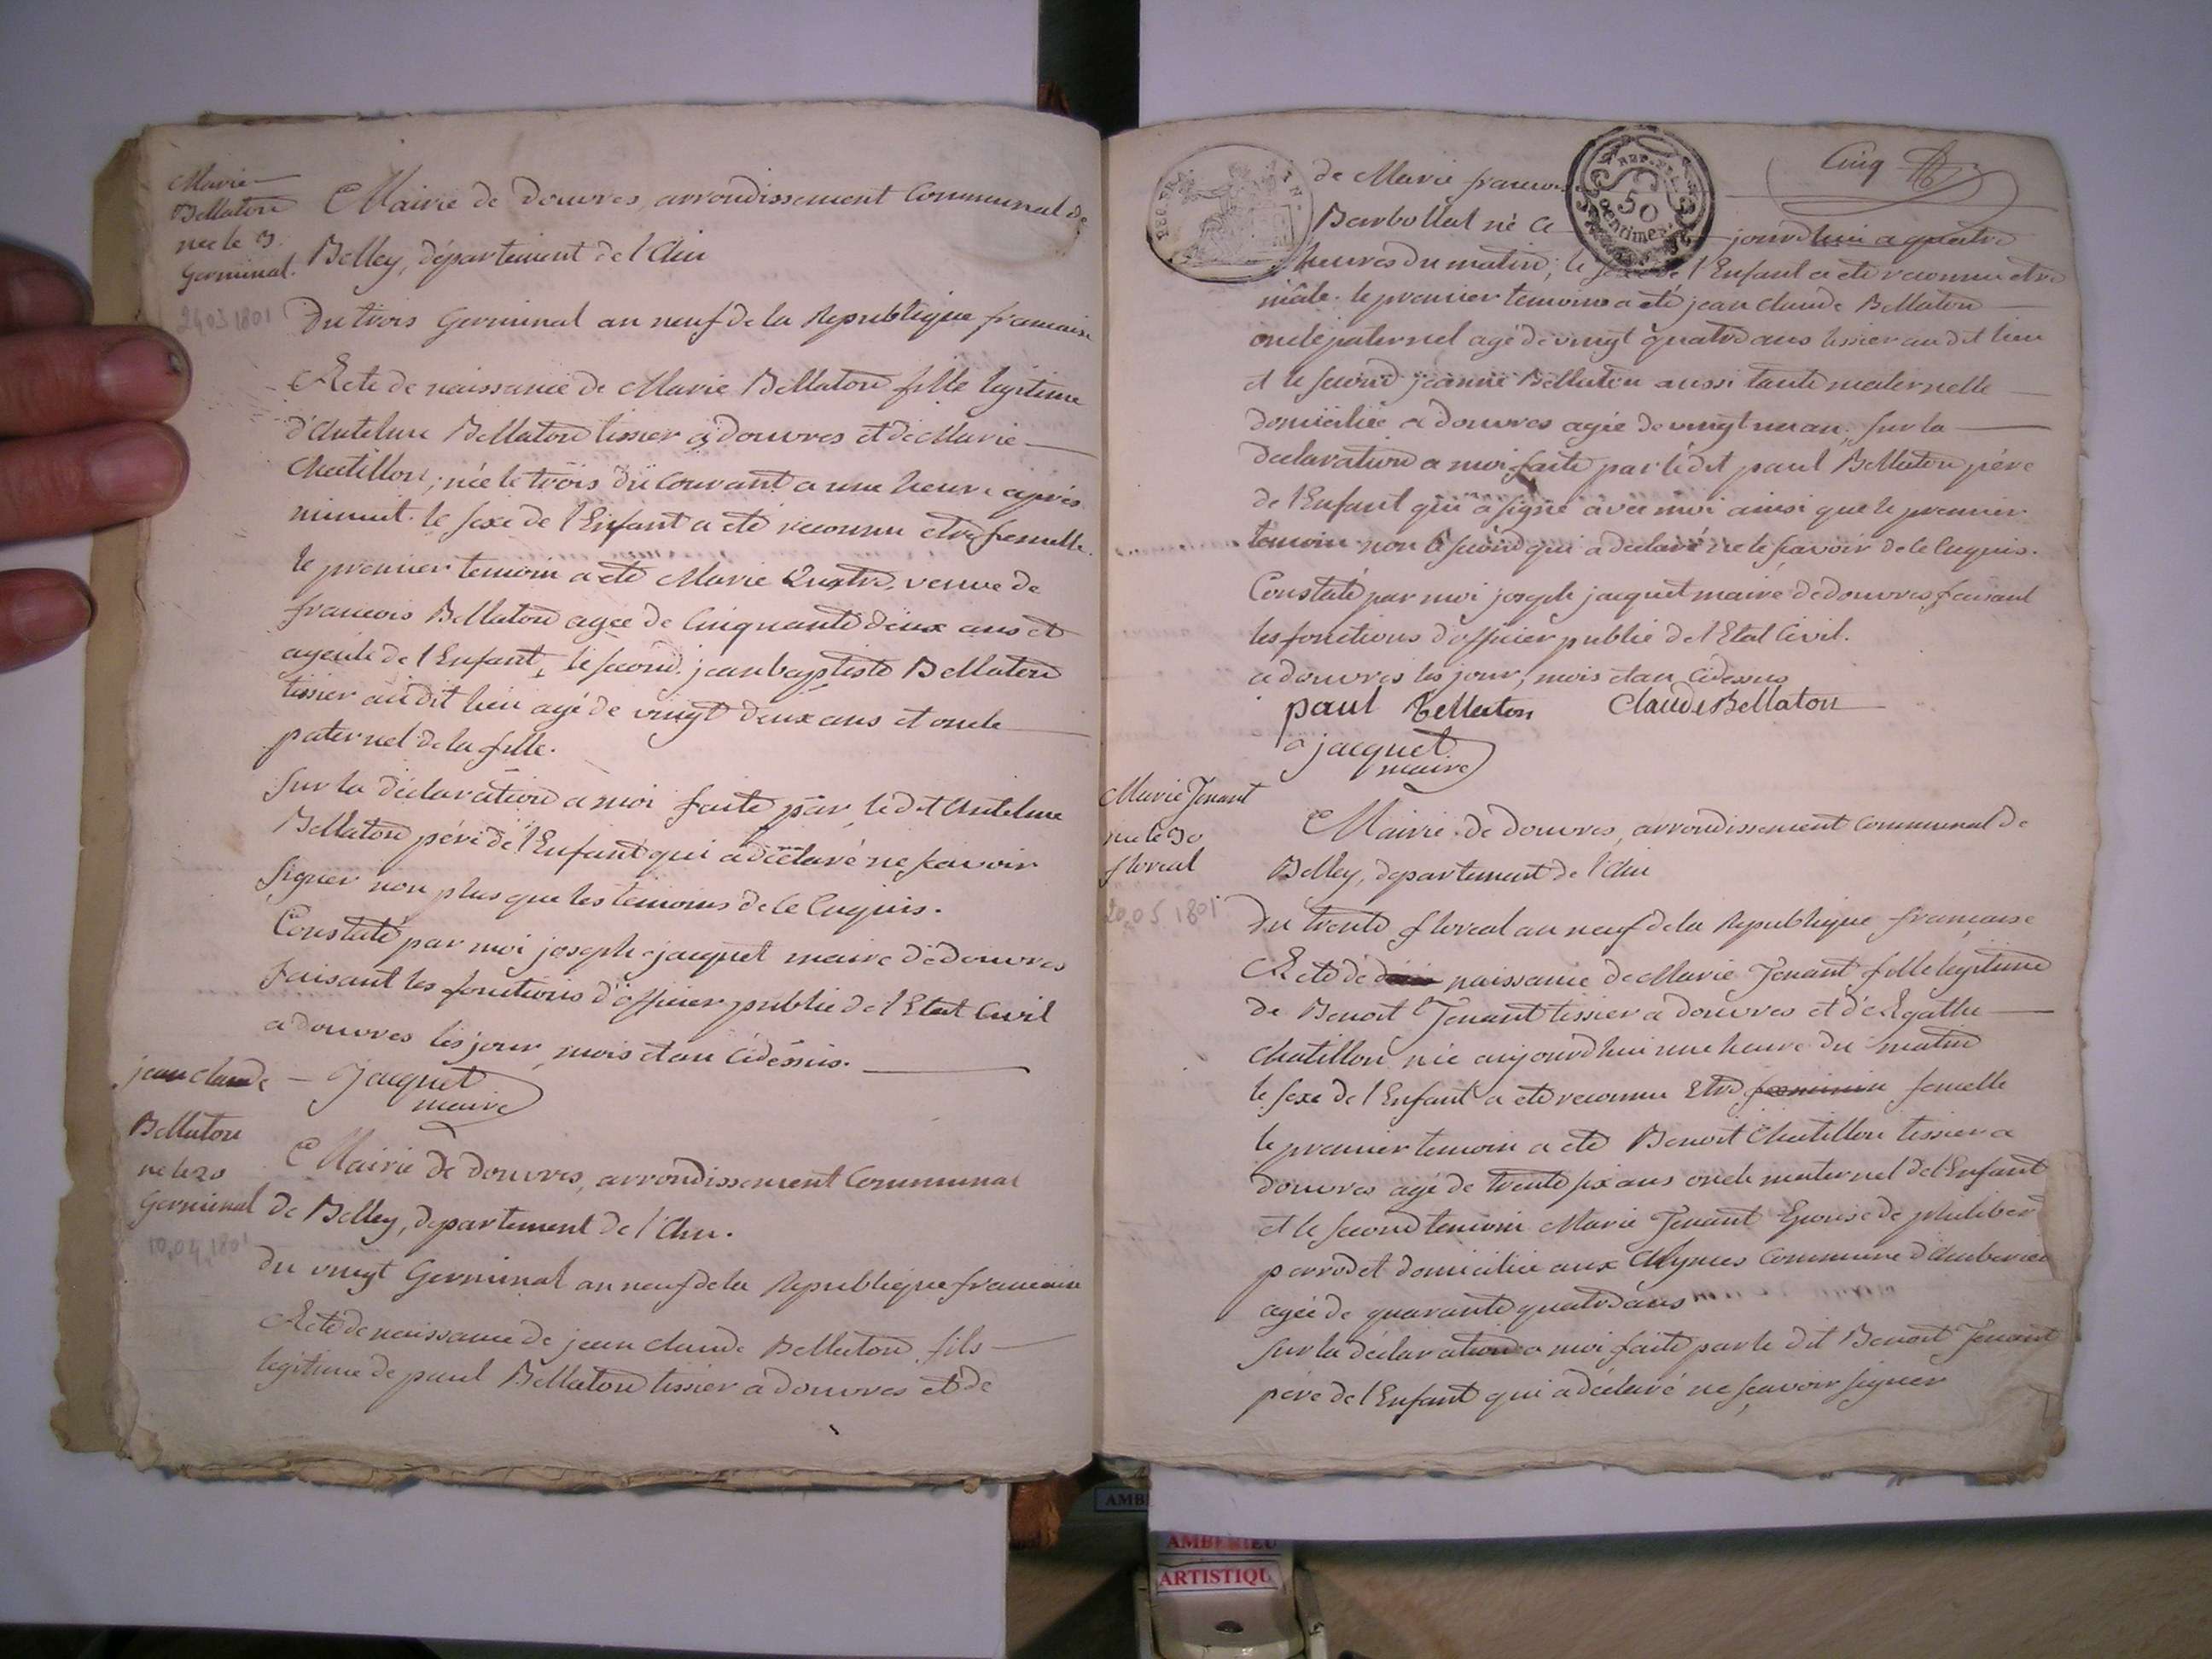 Marie
Bellaton
née le 3.
Germinal.
24 03 1801
Mairie de douvres, arrondissement Communal de
Belley, département de l'Ain
Du trois Germinal an neuf de la Republique francaise
Acte de naissance de Marie Bellaton fille legitime
d'Antelme Bellaton tissier a douvres et de Marie
Chatillon, née le trois du Courant a une heure après
minuit. le sexe de l'Enfant a eté reconnu etre femelle.
le premier temoin a eté Marie Quatre, veuve de
francois Bellaton agée de Cinquante deux ans et
ayeule de l'Enfant, le second. jean baptiste Bellaton
tissier audit lieu agé de vingt deux ans et oncle
paternel de la fille.
Sur la declaration a moi faite par ledit Antelme
Bellaton pére de l'Enfant qui a declaré ne scavoir
signer non plus que les temoins de ce Enquis.
Constaté par moi joseph jacquet maire de douvres
faisant les fonctions d'officier public de l'Etat Civil
a douvres les jour, mois et an cidessus.
jacquet
maire
jean claude
Bellaton
né le 20
Germinal
10.04.1801
Mairie de douvres, arrondissement Communal
de Belley, departement de l'Ain.
du vingt Germinal an neuf de la Republique francaise
Acte de naissance de jean claude Bellaton fils
legitime de paul Bellaton tissier a douvres et de
Cinq
REP. FRA.
50
Centimes
de Marie francois
Barbollat né a jourdhui a quatre
heures du matin; le sexe de l'Enfant a eté reconnu etre
mâle. le premier temoins a eté jean claude Bellaton
oncle paternel agé de vingt quatre ans tissier audit lieu
et le second jeanne Bellaton aussi tante maternelle
domiciliée a douvres agée de vingt un an. Sur la
declaration a moi faite par ledit paul Bellaton pére
de l'Enfant qui a signé avec moi ainsi que le premier
temoin non le second qui a declaré ne le scavoir de ce Enquis.
Constaté par moi joseph jacquet maire de douvres faisant
les fonctions d'officier public de l'Etat Civil.
a douvres les jour, mois et an Cidessus
paul Bellaton Claude Bellaton
jacquet
maire
Marie Tenant
née le 30
floreal
20.05.1801
Mairie de douvres, arrondissement Communal de
Belley, departement de l'Ain
du trente floreal an neuf de la Republique francaise
Acte de naissance de Marie Tenant fille legitime
de Benoit Tenant tissier a douvres et d'Agathe
chatillon née aujourdhui une heure du matin
le sexe de l'Enfant a eté reconnu Etre feminin femelle
le premier temoin a eté Benoit Chatillon tissier a
douvres agé de trente six ans oncle maternel de l'Enfant
et le second temoin Marie Tenant Epouse de philiber
perrodet domiciliée aux Allymes Commune d'Amberieu
agée de quarante quatre ans
Sur la declaration a moi faite par le dit Benoit Tenant
pére de l'Enfant qui a declaré ne scavoir signer
AMB
AMBERIEU
ARTISTIQU